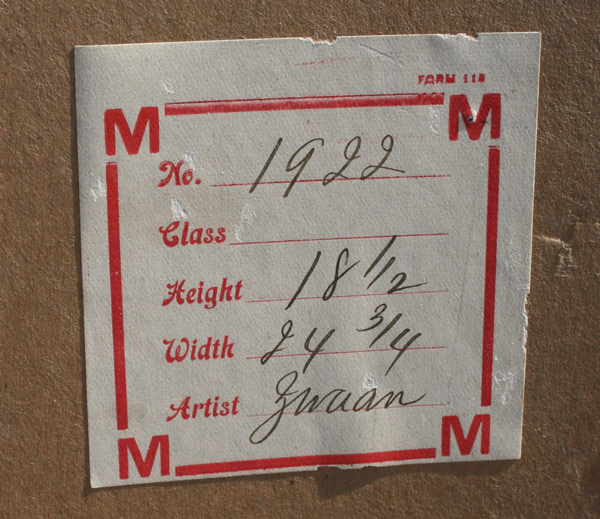 FORM 118
M M
No. 1922
Class
Height 18 1/2
Width 24 3/4
Artist Zwaan
M M